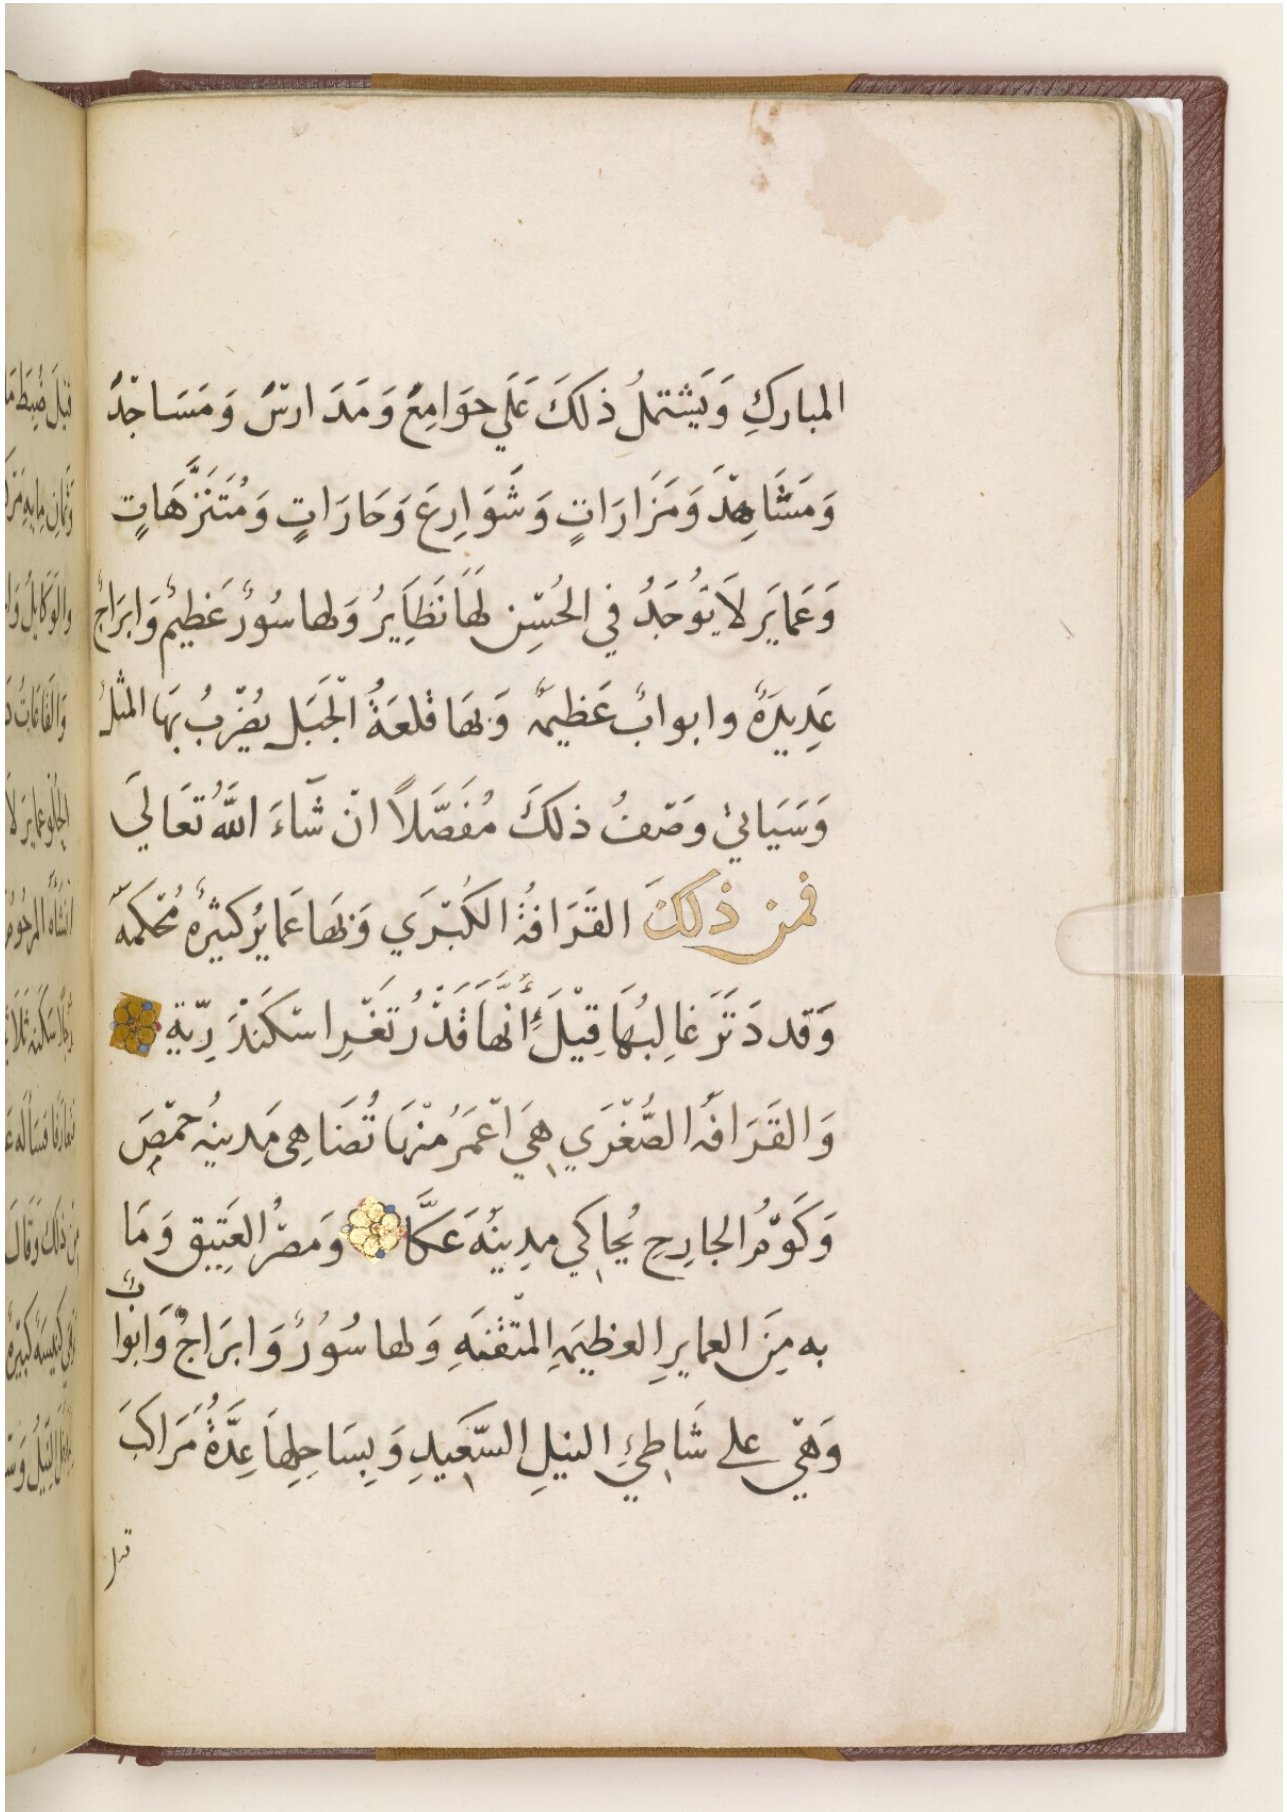 المبارك وَيَشتملُ ذلكَ عَلَي جوَامِعٌ وَمَدَارسٌ وَمَسَاجدٌ
وَمَشَاهِدَ وَمَزَارَاتٍ وَشَوَارِعَ وَحَارَاتٍ وَمُتَنَزَّهَاتٍ
وَعَمايَر لاَ يُوُجَدُ في الحُسْنِ لهَا نَظَايِرُ وَلها سُورٌ عَظيمٌ وَابرَاجٌ
عَدِيدَةٌ وابوابٌ عَظيمَة وَبهَا قلعَةُ الْجَبَل يضْرَبُ بهَا المثلُ
وَسَيَاتيْ وَصْفُ ذلكَ مُفَصَّلاً انْ شَآءَ اللَّهُ تعَالَي
فمن ذلكَ القَرَافَةُ الكُبْرَي وَبهَا عَمايرُ كثيرَةٌ مُحْكمَة
وَقد دَثَرَ غالِبُهَا قِيْلَ أَنَّهَا قَدْرُ ثَغْرِ اسْكَنْدَرِيّةِ
وَالقَرَافَة الصُّغْرَي هِيَ اعْمَرُ مْنهَا تُضَاهِى مَدينةُ حمْصَ
وَكَوْمُ الجارِحِ يُحاكي مدِينَةَ عَكَّا وَمصْرُ العَتِيقِ وَمَا
به مِنَ العمايرِ العظيمَةِ المتْقنَةِ وَلها سُوُرٌ وَابرَاجٌ وَابوابٌ
وَهيَ على شَاطِئِ النيلِ السَّعَيدِ وَبِسَاحِلِهاَ عِدَّةُ مَرَاكبَ